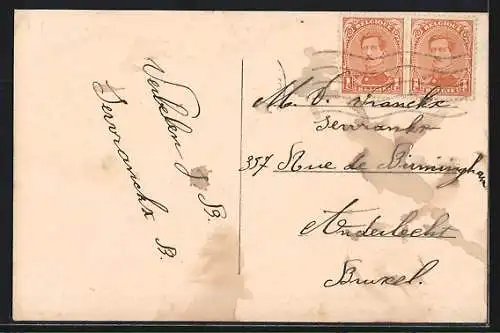 BELGIQUE BELGIQUE
1 1 1 1
Verbelen J B.
Servranckx B.
M. V. Vranckx
Servranckx
357 Rue de Birmingham
Anderlecht
Bruxel.